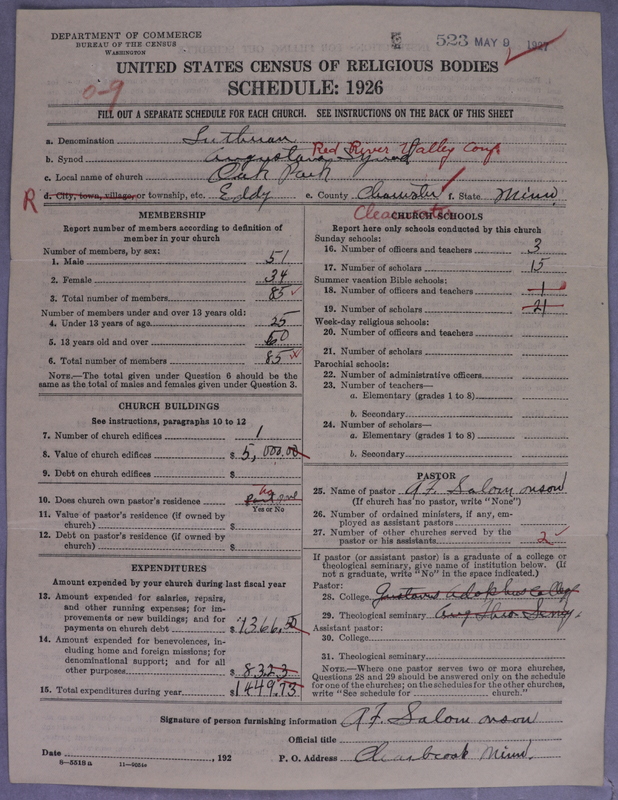 DEPARTMENT OF COMMERCE
BUREAU OF THE CENSUS
WASHINGTON
523 MAY 9 1927
UNITED STATES CENSUS OF RELIGIOUS BODIES
SCHEDULE: 1926
0-9
FILL OUT A SEPARATE SCHEDULE FOR EACH CHURCH. SEE INSTRUCTIONS ON THE BACK OF THIS SHEET
a. Denomination Lutheran
b. Synod Augustana Synod Red River Valley Conf
c. Local name of church Oak Park
R d. City, town, village, or township, etc. Eddy e. County Clearwater f. State Minn.
Clearwater
MEMBERSHIP
Report number of members according to definition of
member in your church
Number of members, by sex:
1. Male 51
2. Female 34
3. Total number of members 85
Number of members under and over 13 years old:
4. Under 13 years of age 25
5. 13 years old and over 60
6. Total number of members 85
NOTE.—The total given under Question 6 should be the
same as the total of males and females given under Question 3.
CHURCH BUILDINGS
See instructions, paragraphs 10 to 12
7. Number of church edifices 1
8. Value of church edifices $ 5,000.00
9. Debt on church edifices $
10. Does church own pastor's residence no
Yes or No
11. Value of pastor's residence (if owned by
church) $
12. Debt on pastor's residence (if owned by
church) $
EXPENDITURES
Amount expended by your church during last fiscal year
13. Amount expended for salaries, repairs,
and other running expenses; for im-
provements or new buildings; and for
payments on church debt $ 1366.50
14. Amount expended for benevolences, in-
cluding home and foreign missions; for
denominational support; and for all
other purposes $ 83.23
15. Total expenditures during year $ 1449.73
CHURCH SCHOOLS
Report here only schools conducted by this church
Sunday schools:
16. Number of officers and teachers 3
17. Number of scholars 15
Summer vacation Bible schools:
18. Number of officers and teachers 1
19. Number of scholars 21
Week-day religious schools:
20. Number of officers and teachers
21. Number of scholars
Parochial schools:
22. Number of administrative officers
23. Number of teachers—
a. Elementary (grades 1 to 8)
b. Secondary
24. Number of scholars—
a. Elementary (grades 1 to 8)
b. Secondary
PASTOR
25. Name of pastor A.F. Salomonson
(If church has no pastor, write "None")
26. Number of ordained ministers, if any, em-
ployed as assistant pastors
27. Number of other churches served by the
pastor or his assistants 2
If pastor (or assistant pastor) is a graduate of a college or
theological seminary, give name of institution below. (If
not a graduate, write "No" in the space indicated.)
Pastor:
28. College Gustavus Adolphus College
29. Theological seminary Aug Theo Semy.
Assistant pastor:
30. College
31. Theological seminary
NOTE.—Where one pastor serves two or more churches,
Questions 28 and 29 should be answered only on the schedule
for one of the churches; on the schedules for the other churches,
write "See schedule for church."
Signature of person furnishing information A.F. Salomonson
Official title
Date , 192 P. O. Address Clearbrook Minn.
8—5518a 11—9051